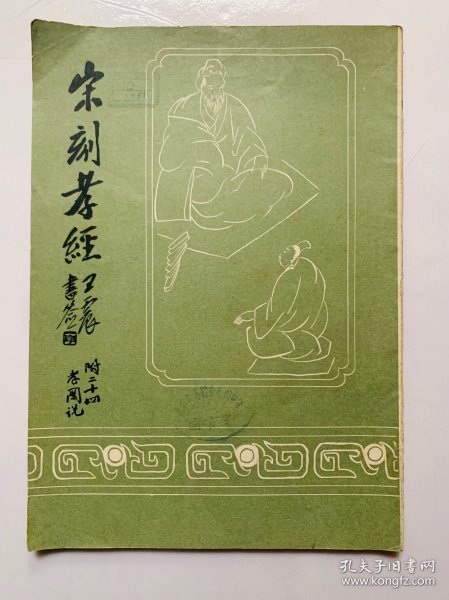 宋刻孝經
王震
書簽
附二十四
孝图说
孔夫子旧书网
www.kongfz.com